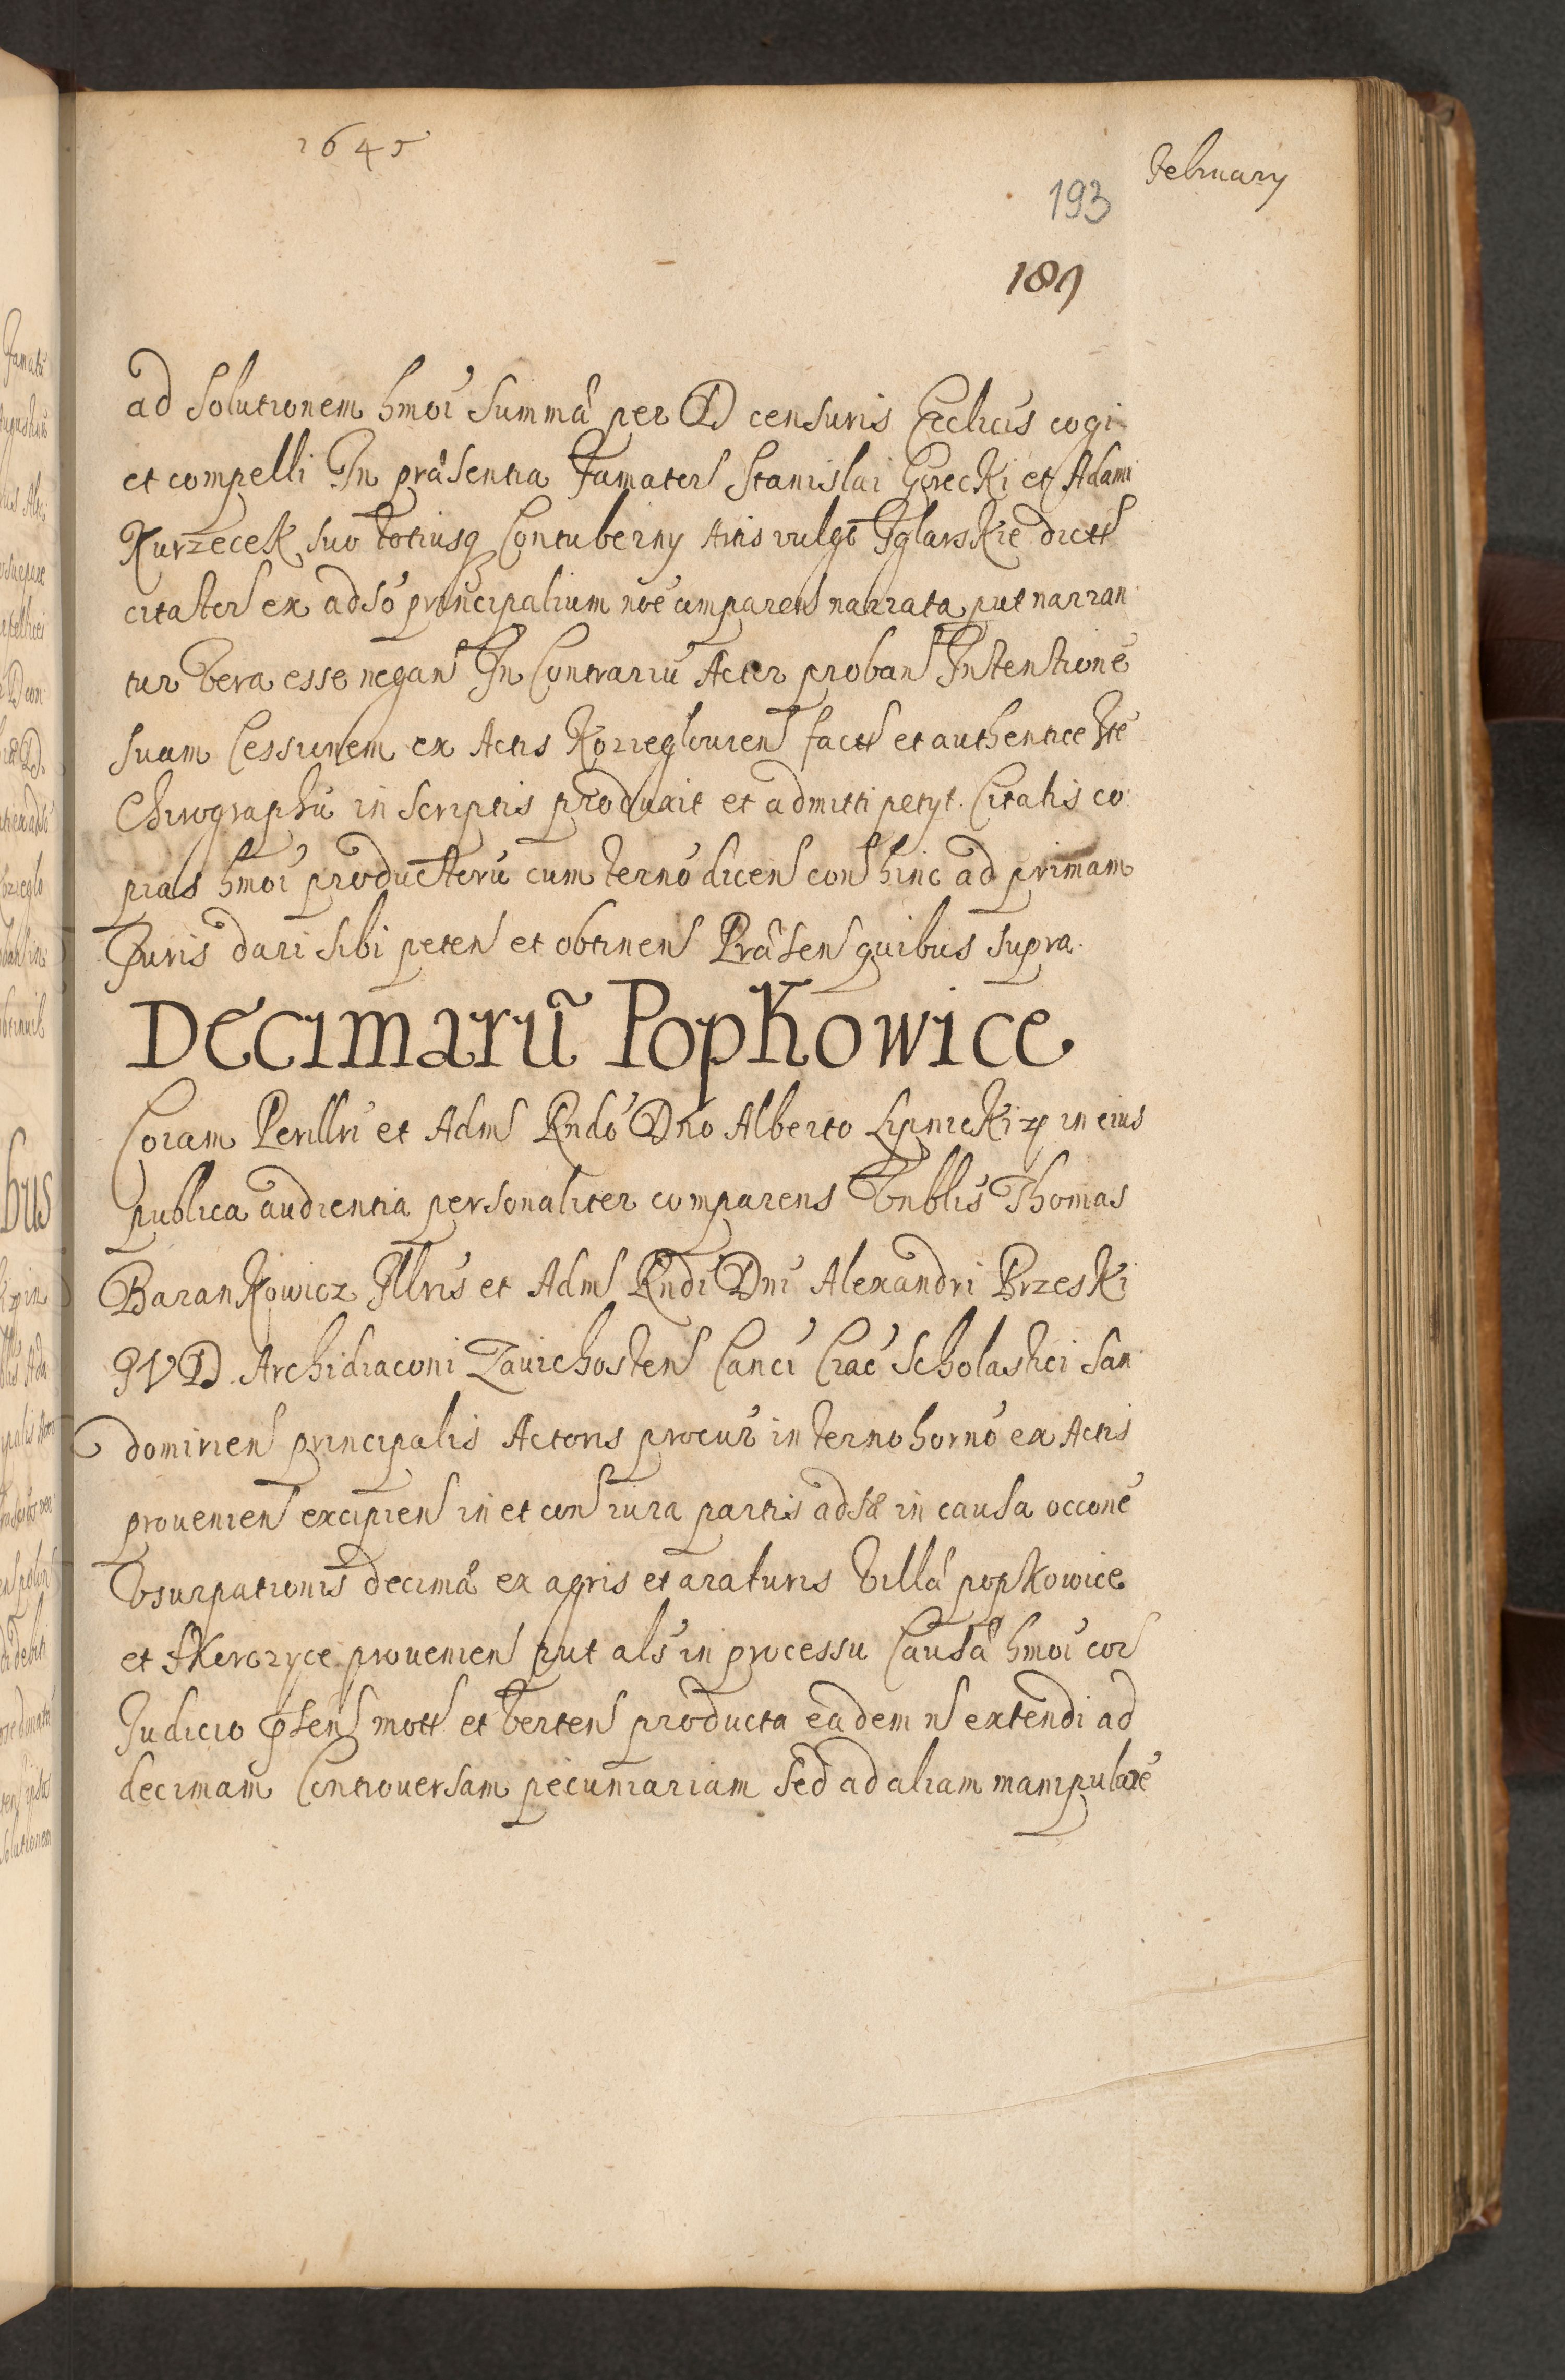 1645
February
193
189
ad Solutionem hmoi Summæ per D censuris Ecclicis cogi
et compelli In præsentia Famator Stanislai Gorecki et Adami
Kurzecek suo totiusq Contuberny Artis vulgo Iglarskie dictt
citator ex adso principalium noe comparen narrata put narran
tur vera esse negan In Contrariu Actor proban Intentione
suam Cessionem ex Actis Kozieglouien factt et authentice Ite
Chirographu in scriptis produxit et admitti petyt. Citatis co
pias hmoi productoru cum terno dicen con hinc ad primam
Juris dari sibi peten et obtinen Præsen quibus supra.
Decimarũ Popkowice
Coram Perillri et Adm Rndo Dno Alberto Lipnicki in eius
publica audientia personaliter comparens Vnblis Thomas
Barankowicz Illris et Adm Rndi Dni Alexandri Brzeski
IVD Archidiaconi Zauichosten Canci Crac Scholastici San
domirien principalis Actoris procur in terno horno ex Actis
prouenien excipien in et con iura partis adsæ in causa occone
Vsurpationis decimæ ex agris et araturis Villæ popkowice
et Skorczyce prouenien put als in processu Causæ hmoi cor
Judicio psen mott et verten producta eadem n extendi ad
decimam Controuersam pecuniariam sed ad aliam manipulare